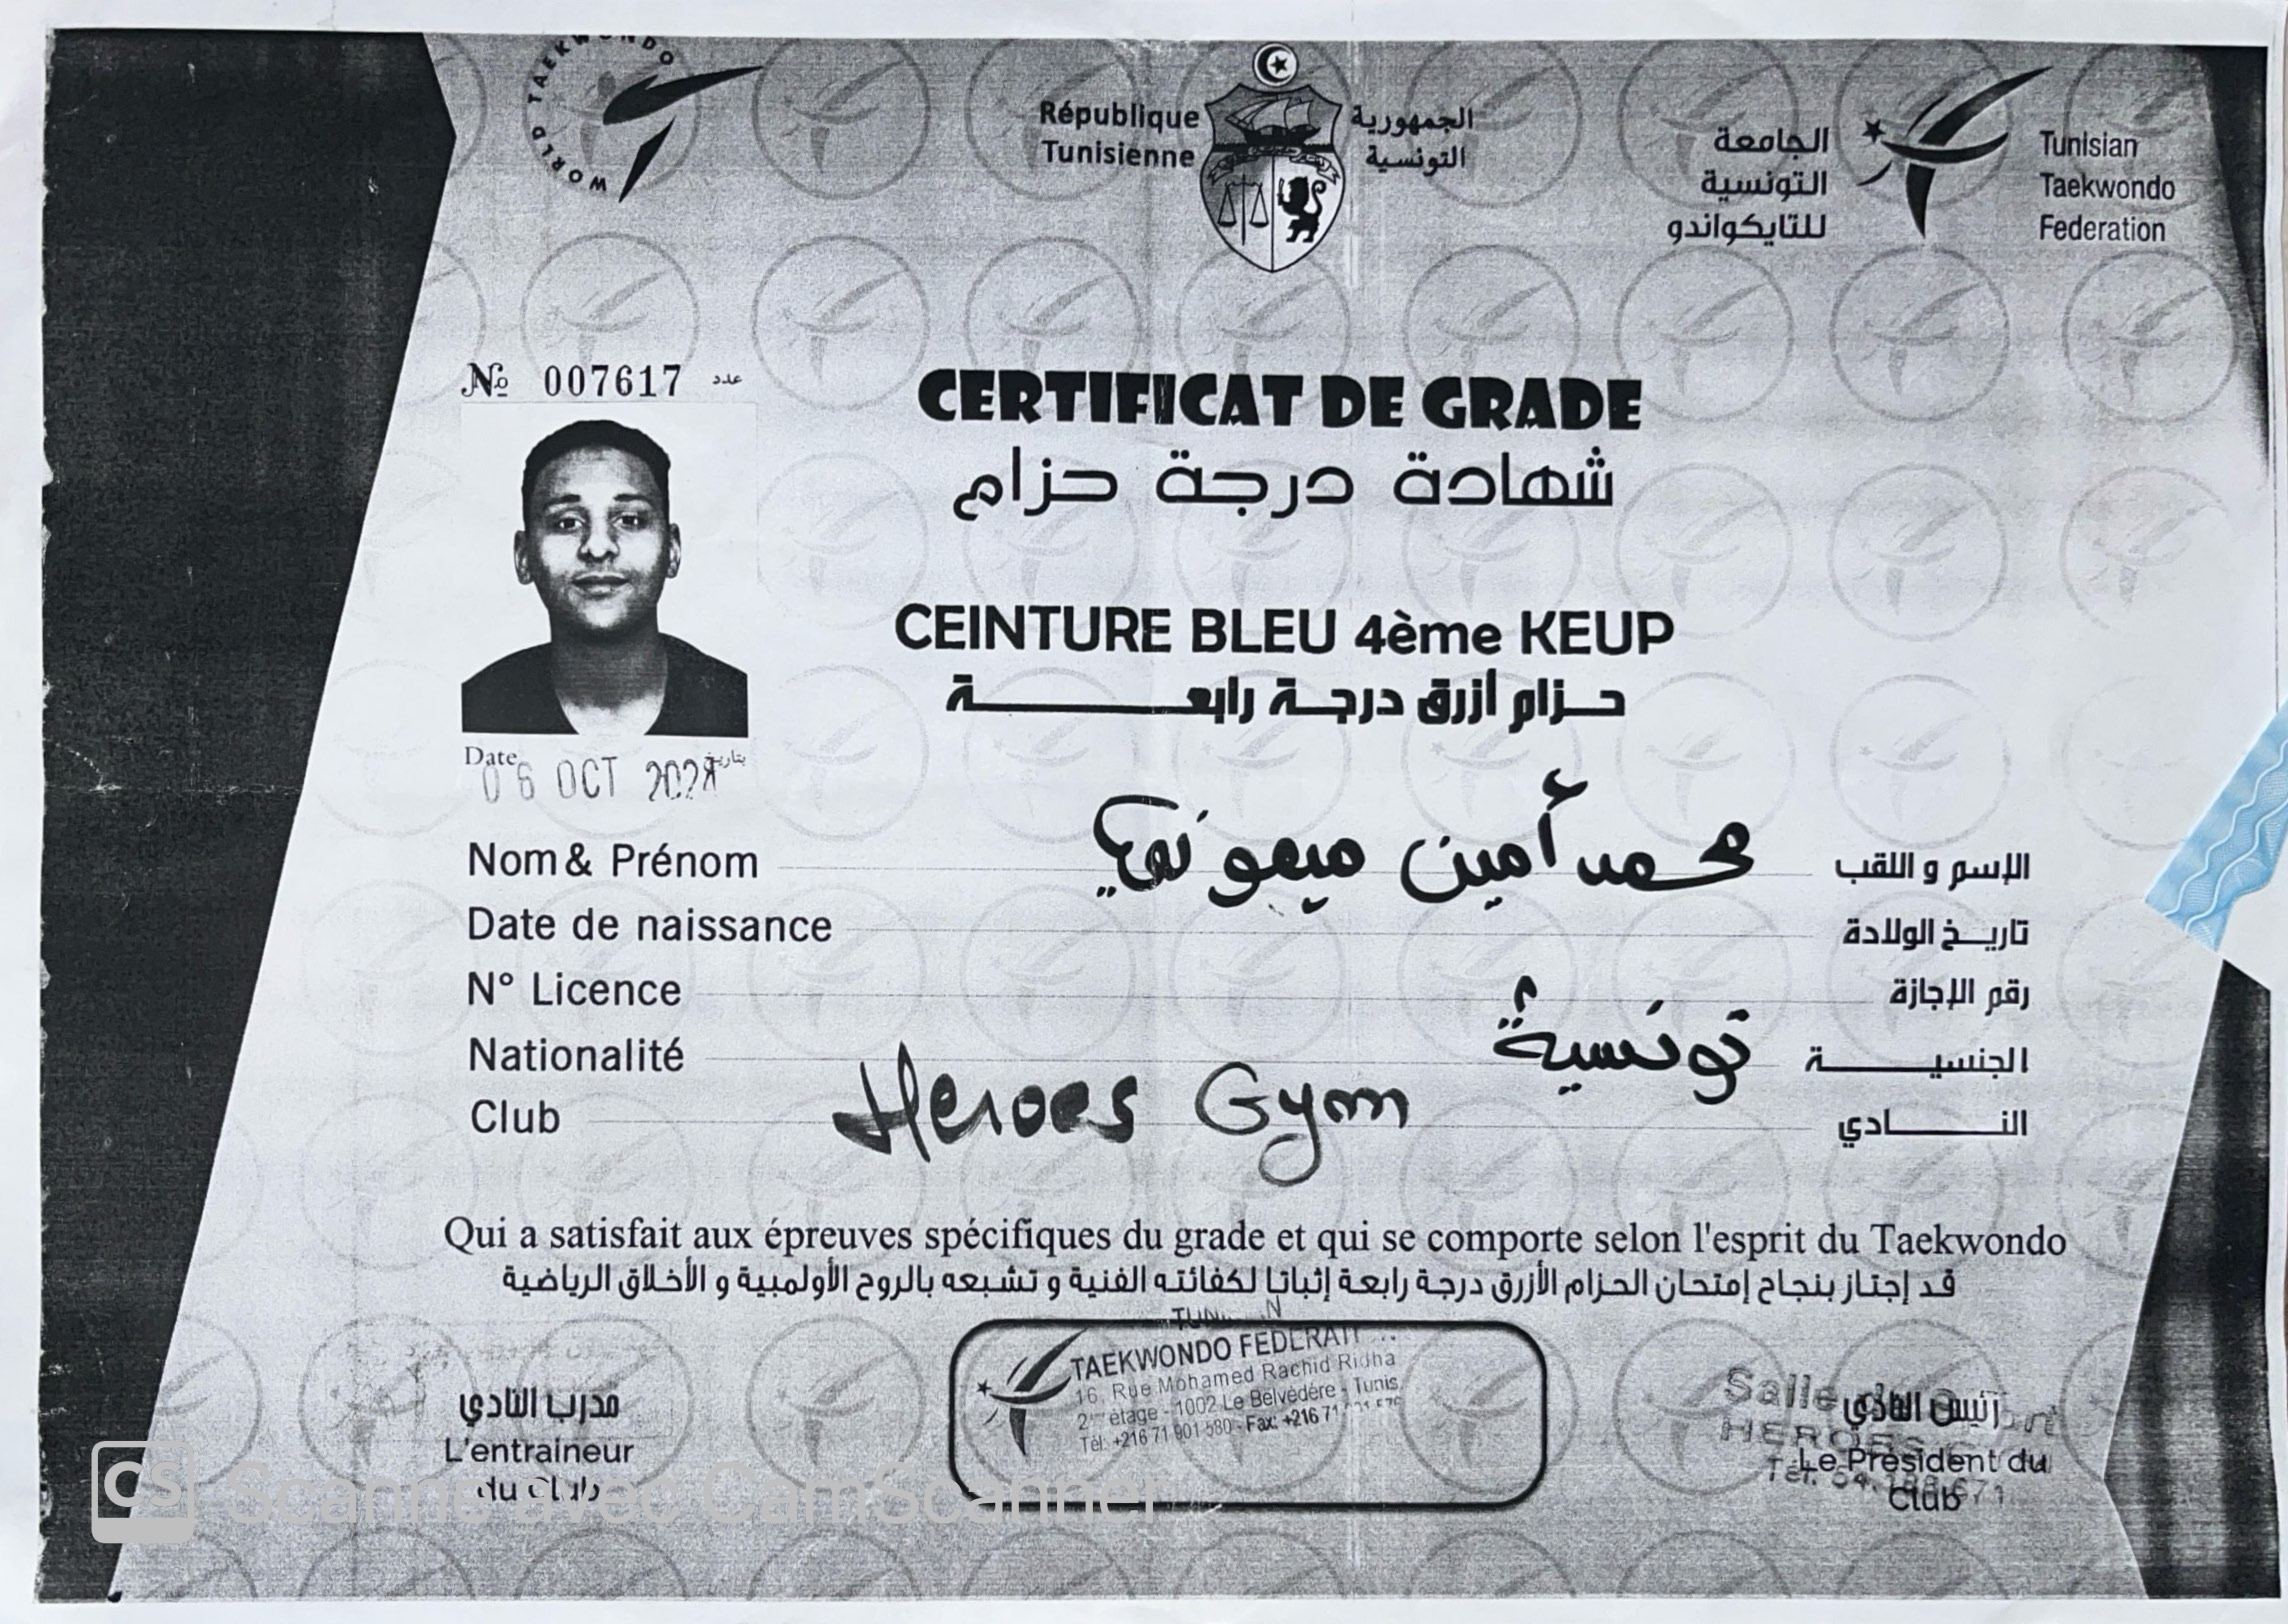 WORLD TAEKWONDO
République
Tunisienne
الجمهورية
التونسية
الجامعة
التونسية
للتايكواندو
Tunisian
Taekwondo
Federation
№ 007617 عدد
CERTIFICAT DE GRADE
شهادة درجة حزام
CEINTURE BLEU 4ème KEUP
حـزام أزرق درجـة رابعـــــــــة
Date 06 OCT بتاريخ
Nom & Prénom محمد أمين الإسم و اللقب
Date de naissance تاريـخ الولادة
N° Licence رقم الإجازة
Nationalité تونسية الجنسيـــــــة
Club Heroes Gym النـــــــادي
Qui a satisfait aux épreuves spécifiques du grade et qui se comporte selon l'esprit du Taekwondo
قد إجتاز بنجاح إمتحان الحزام الأزرق درجة رابعة إثباتا لكفائته الفنية و تشبعه بالروح الأولمبية و الأخلاق الرياضية
مدرب النادي
L'entraineur
du Club
TAEKWONDO
16, Rue Mohamed Rachid Ridha
étage - 1002 Le Belvédére - Tunis
Tél: +216 71 901 580 - Fax: +216 71
Salle
رئيس النادي
HEROES
Le Président du
Tél:
Club
CS Scanné avec CamScanner